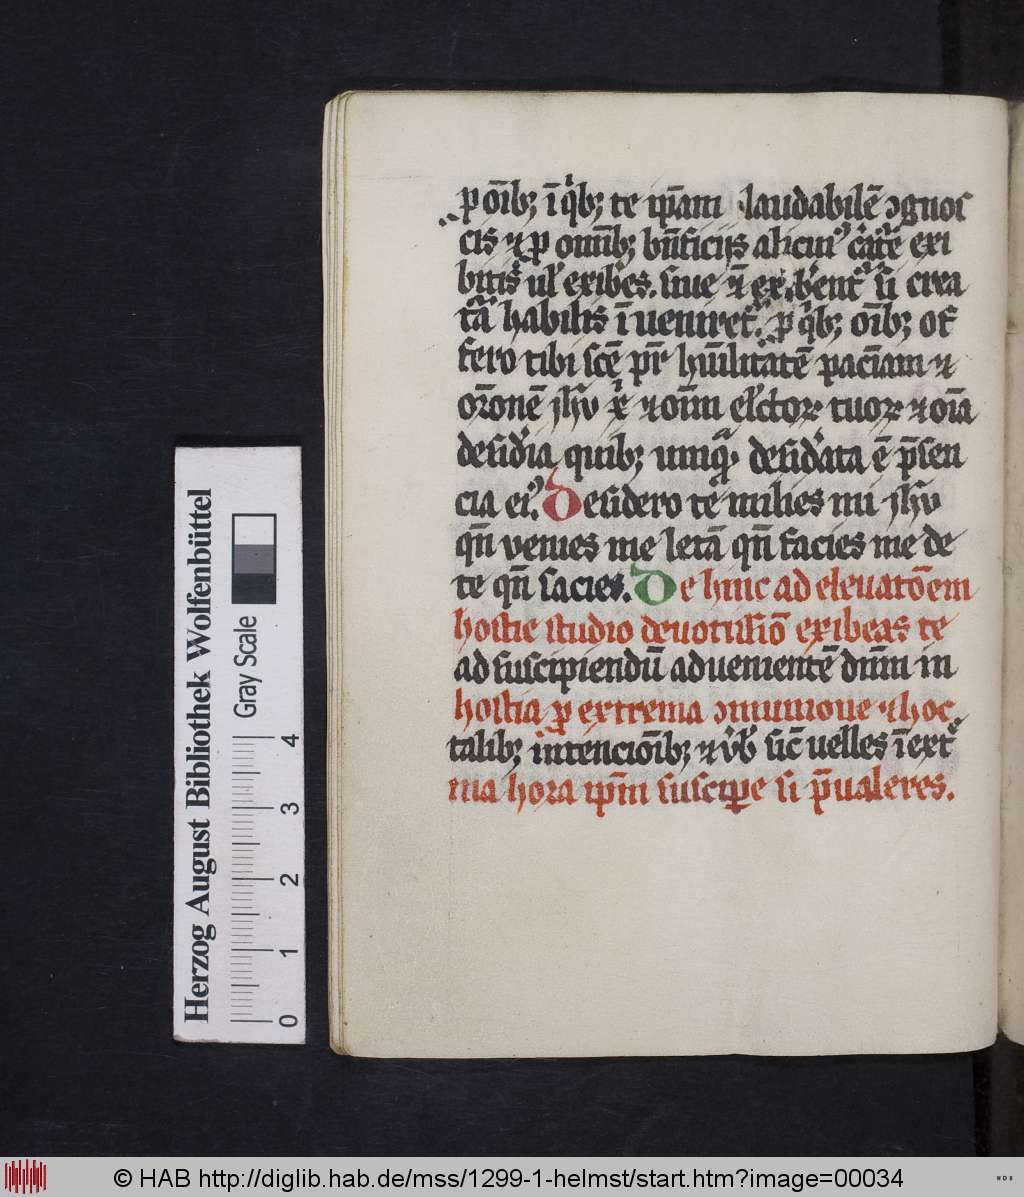 ꝑ oĩbꝫ ĩ qͥbꝫ te ip̃am laudabilẽ ↄgnoſ
cis ⁊ ꝓ omĩbꝫ bñficijs alicui
bitis ul̕ exibes. ſiue exi
tã habilis ĩueniret. ꝓ qͥbꝫ oĩbꝫ of
fero tibi ſcẽ pr̃ hũilitatẽ paciẽciam ⁊
or̃onẽ jhũ xͥ ⁊ oĩm el̕ctoꝝ tuoꝝ ⁊ oĩa
deſid̕ia quibꝫ umqᷓ deſid̕ata ẽ p̃ſen
cia eiꝰ. Deſidero te milies mi jhũ
qñ venies me letũ qñ facies me de
te qñ ſacies. De hinc ad eleuatõem
hoſtie ſtudio deuotiſſiõ exibeas te
ad ſuſcipiendũ aduenientẽ dñm in
hoſtia ꝓ extrema ↄmunione ⁊ hoc
talibꝫ intencioĩbꝫ ⁊ v̕b̕ ſic̃ uelles ĩ ext̕
ma hora ip̃m ſuſcipe ſi p̃ualeres.
Herzog August Bibliothek Wolfenbüttel
Gray Scale
0 1 2 3 4
© HAB http://diglib.hab.de/mss/1299-1-helmst/start.htm?image=00034